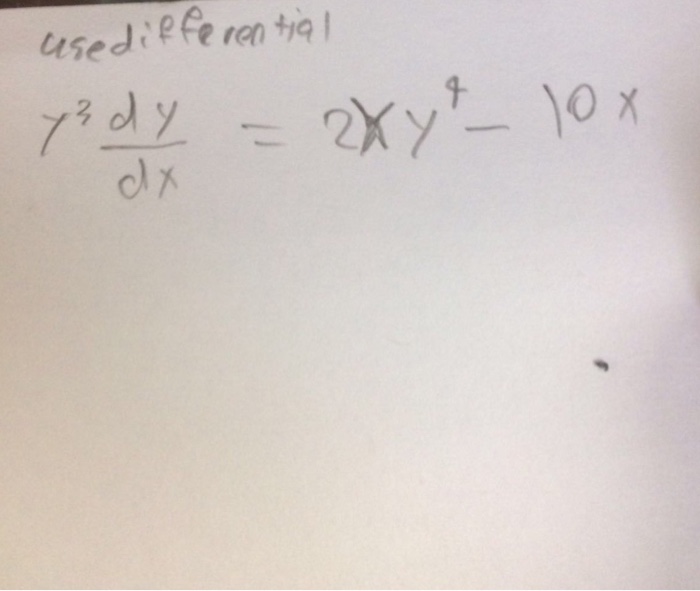 use differential
y³ dy/dx = 2xy⁴ - 10x